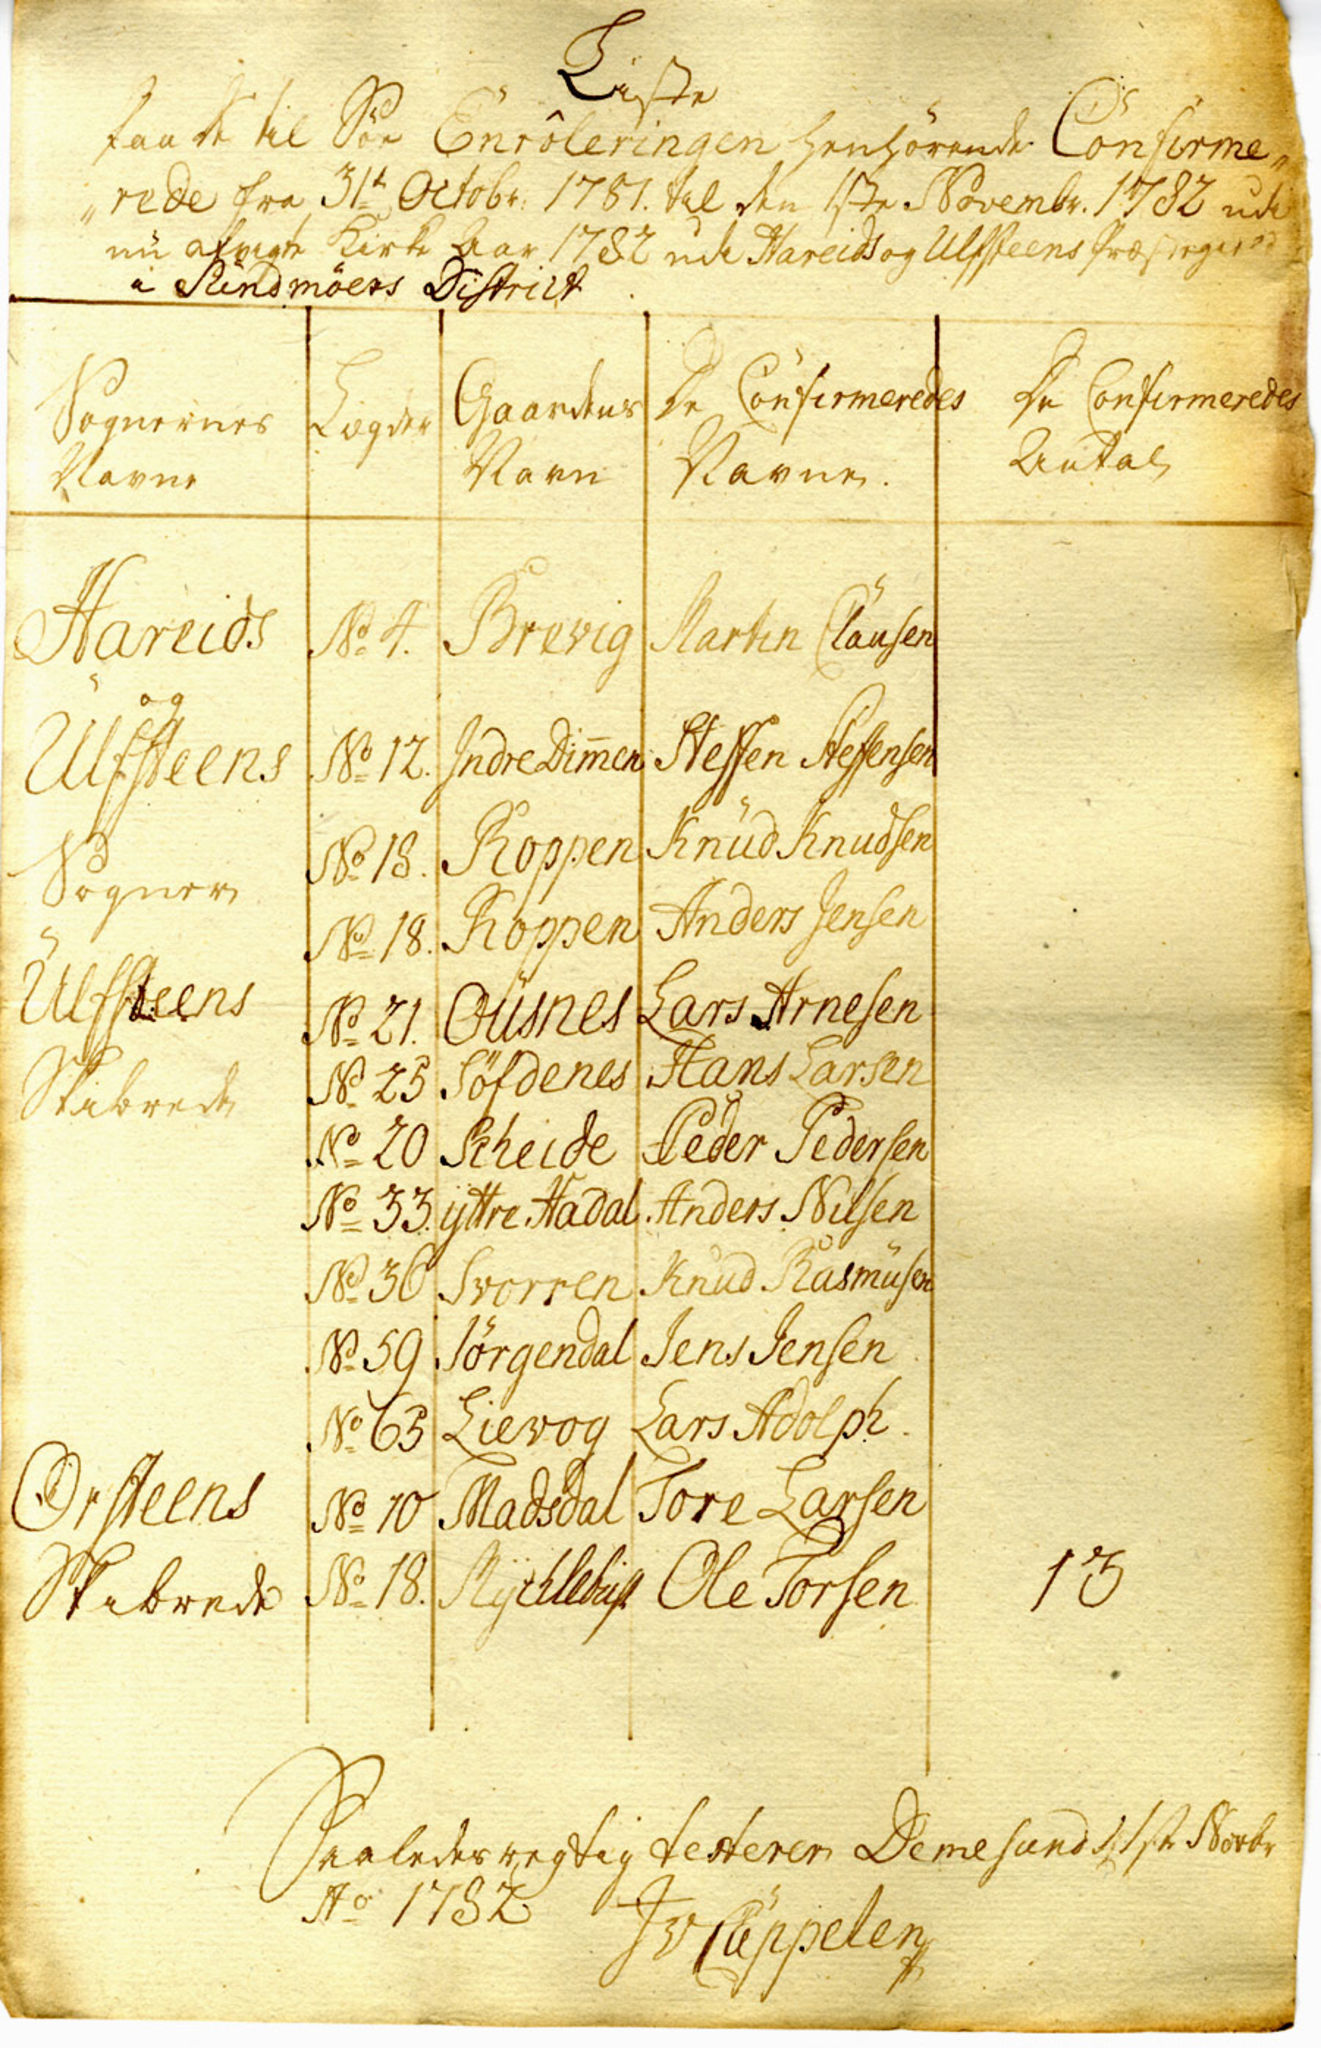 Liste
paa de til Söe Enrôleringen henhörende Confirme„
„rede fra 31te Octobr: 1781. til den 1ste Novembr. 1782 udi
nu afvigte Kirke Aar 1782 udi Hareids og Ulfsteens Præstegield
i Sündmöers District
Sognernes Navne | Lægder | Gaardens Navn | De Confirmeredes Navne. | De Confirmeredes Antal
Hareids No 4. Brevig Martin Clausen
og
Ulfsteens No 12. Indre Dim̄en Steffen Steffensen
Sogner No 18. Roppen Knud Knudsen
No 18. Roppen Anders Jensen
Ulfsteens No 21. Ousnes Lars Arnesen
Skibrede No 25 Söfdenes Hans Larsen
No 20 Scheide Peder Pedersen
No 33. ÿttre Hadal Anders Nilsen
No 36 Svorren Knud Rasmusen
No 59 Jörgendal Jens Jensen
No 63 Lievog Lars Adolph.
Örsteens No 10 Madsdal Tore Larsen
Skibrede No 18. Mychlebust Ole Torsen 13
Saaledes rigtig testerer Dimesund 1ste Novbr
Ao 1782
J v Cappelen